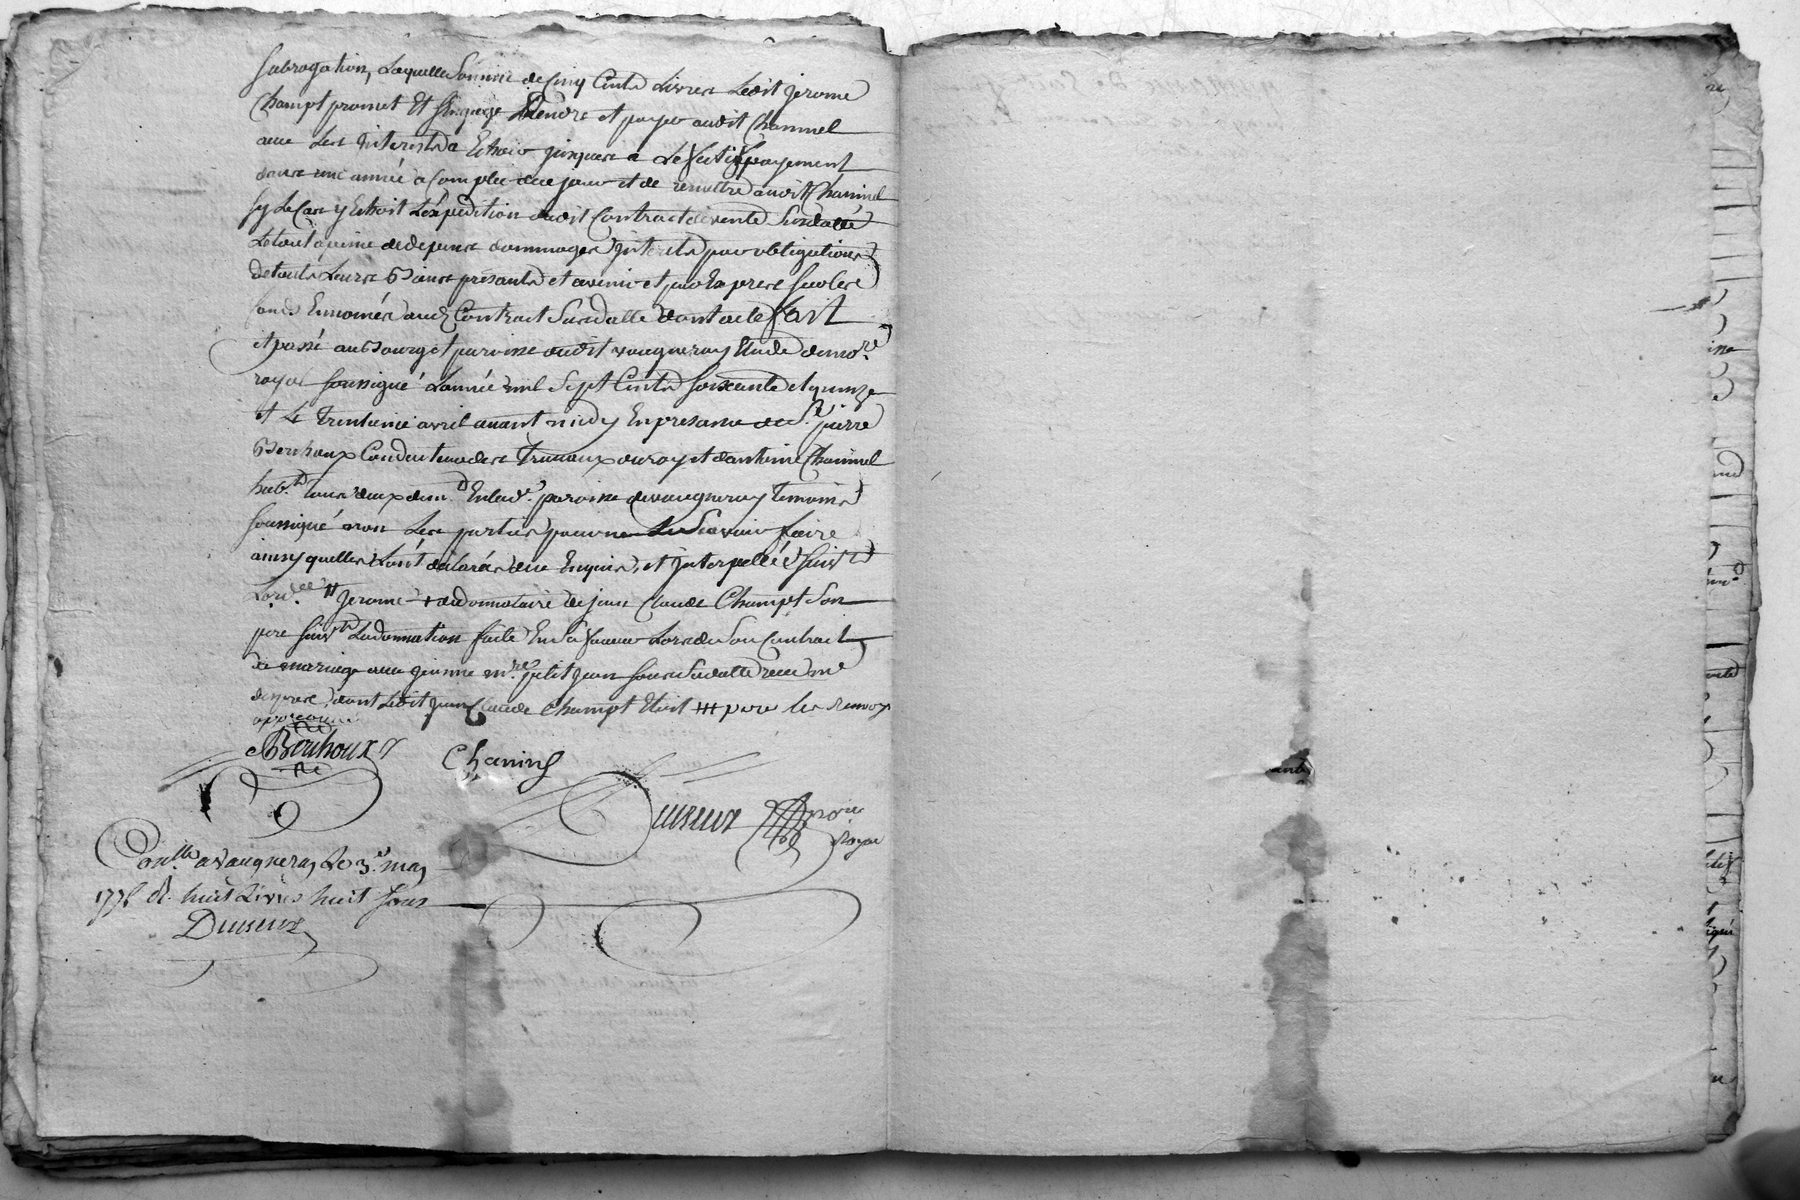 Subrogation, Laquelle Somme de Cinq Cents Livres Ledit jerome
Champt promet Et s'engage Rendre et payer audit Chaninel
avec Les interests a Echoir jusques a Le payement
dans une année a Compter de ce jour et de remettre audit Chaninel
sy Le Cas y Echoit L'expedition dudit Contract de vente Susdatté
Le tout a peine de depens dommages interets par obligations
de touts Leurs Biens presants et avenir et par Expres sur les
fonds Ennomés audit Contract Susdatté dont acte fait
et passé au Bourg et paroisse dudit vaugneray Etude de no.re
royal soussigné L'année mil Sept Cents soixante et quinze
et Le trentieme avril avant midy En presance de S.r pierre
Berthoux Conducteur des travaux du roy et d'antoine Chaninel
hab.ts tous deux dem.ts En lad.e paroisse de vaugneray temoins
soussigné non Les parties pour ne Le Scavoir faire
ainsy quelles L'ont déclarés de ce Enquis, et interpellées suiv.t
L'ord.ce # jerome + donnataire de jean Claude Champt Son
pere suiv.t La donnation faite En Sa faveur Lors de Son Contract
de mariage avec jeanne m.re petit jean sous Sa datte receu m.e
dont Ledit jean Claude Champt Etoit +++ pour les renvoys
approuvés
Berthoux
Chaninel
Duseux no.re
Royal
Con.llé a Vaugneray Le 3.e may
1775 R. huit Livres huit sous
Duseux